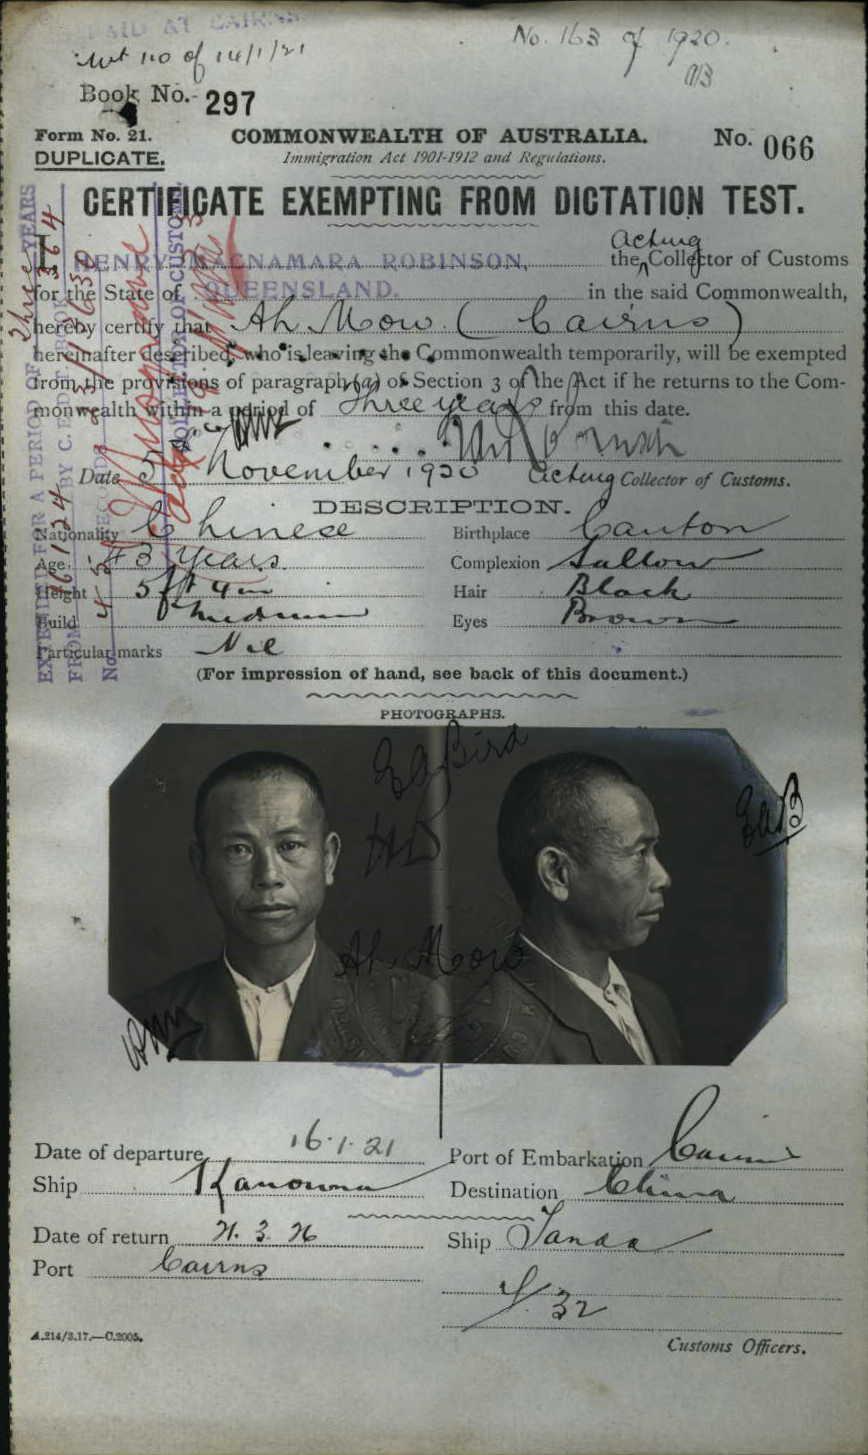 PAID AT CAIRNS
No. 163 of 1920.
110 of 14/1/21
Book No. 297
Form No. 21.
COMMONWEALTH OF AUSTRALIA.
No. 066
DUPLICATE.
Immigration Act 1901-1912 and Regulations.
CERTIFICATE EXEMPTING FROM DICTATION TEST.
I HENRY MACNAMARA ROBINSON, the Acting Collector of Customs
for the State of QUEENSLAND. in the said Commonwealth,
hereby certify that Ah Mow (Cairns)
hereinafter described, who is leaving the Commonwealth temporarily, will be exempted
from the provisions of paragraph (a) of Section 3 of the Act if he returns to the Com-
monwealth within a period of Three years from this date.
Date 5 November 1920 Acting Collector of Customs.
EXTENDED FOR A PERIOD OF Three YEARS
FROM 16/1/24 BY C.E.D.T. BOOK
No.
COLLECTOR OF CUSTOMS
DESCRIPTION.
Nationality Chinese
Birthplace Canton
Age 43 years
Complexion Sallow
Height 5 ft 4 in
Hair Black
Build medium
Eyes Brown
Particular marks Nil
(For impression of hand, see back of this document.)
PHOTOGRAPHS.
Bird
Ah Mow
Date of departure 16.1.21
Port of Embarkation Cairns
Ship Kanowna
Destination China
Date of return 21.3.26
Ship Tanda
Port Cairns
32
A.214/3.17.—C.2005.
Customs Officers.